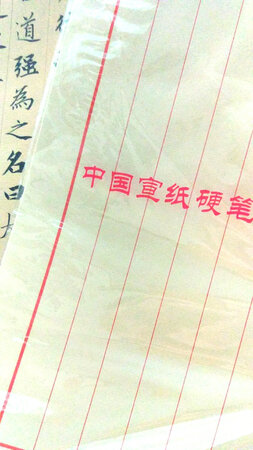 中国宣纸硬笔
道强為之名曰